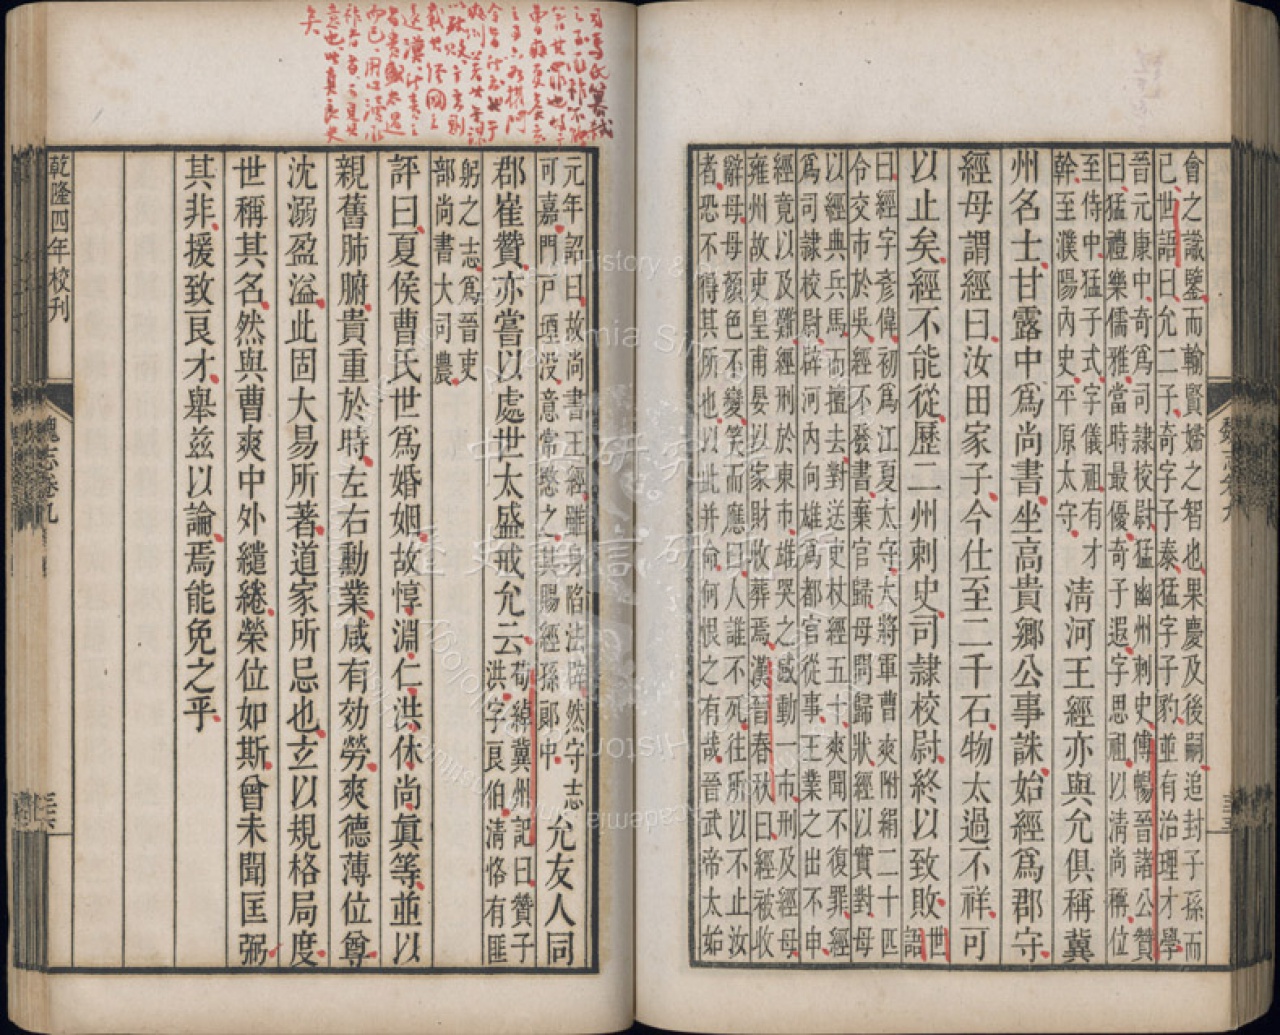 會之識鑒而輸賢婦之智也果慶及後嗣追封子孫而
已世語曰允二子奇字子泰猛字子豹並有治理才學
晉元康中奇爲司隸校尉猛幽州刺史傅暢晉諸公贊
曰猛禮樂儒雅當時最優奇子遐字思祖以清尚稱位
至侍中猛子式字儀祖有才
幹至濮陽內史平原太守
清河王經亦與允俱稱冀
州名士甘露中爲尚書坐高貴鄉公事誅始經爲郡守
經母謂經曰汝田家子今仕至二千石物太過不祥可
以止矣經不能從歷二州刺史司隸校尉終以致敗
世
語
曰經字彥偉初爲江夏太守大將軍曹爽附絹二十匹
令交市於吳經不發書棄官歸母問歸狀經以實對母
以經典兵馬而擅去對送吏杖經五十爽聞不復罪經
爲司隸校尉辟河內向雄爲都官從事王業之出不申
經竟以及難經刑於東市雄哭之感動一市刑及經母
雍州故吏皇甫晏以家財收葬焉漢晉春秋曰經被收
辭母母顏色不變笑而應曰人誰不死往所以不止汝
者恐不得其所也以此并命何恨之有哉晉武帝太始
元年詔曰故尚書王經雖身陷法辟然守志
可嘉門戶堙沒意常愍之其賜經孫郎中
允友人同
郡崔贊亦嘗以處世太盛戒允云
荀綽冀州記曰贊子
洪字良伯清恪有匪
躬之志爲晉吏
部尚書大司農
評曰夏侯曹氏世爲婚姻故惇淵仁洪休尚眞等並以
親舊肺腑貴重於時左右勳業咸有效勞爽德薄位尊
沈溺盈溢此固大易所著道家所忌也玄以規格局度
世稱其名然與曹爽中外繾綣榮位如斯曾未聞匡弼
其非援致良才舉茲以論焉能免之乎
乾隆四年校刊
魏志卷九